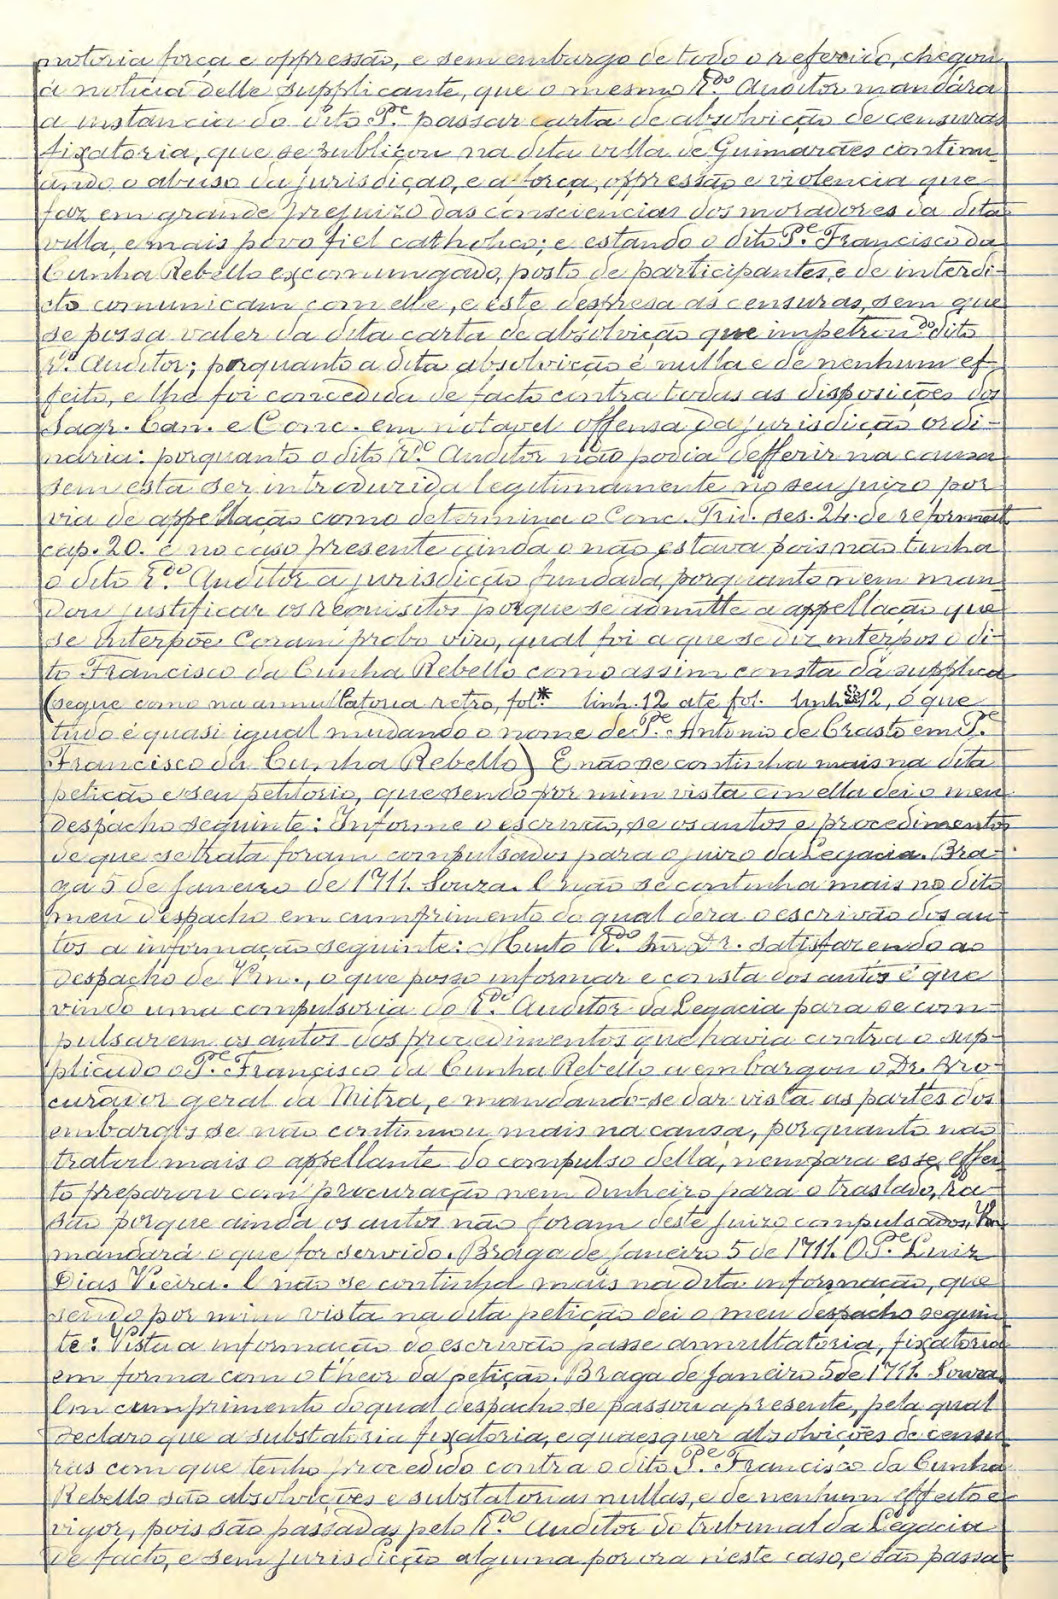 notoria força e oppressão, e sem embargo de todo o referido, chegou
á noticia delle supplicante, que o mesmo R.do Auditor mandára
a instancia do dito P.e passar carta de absolvição de censuras
fixatoria, que se publicou na dita villa de Guimarães continu-
ando o abuso da jurisdição, e a força, oppressão e violencia que
faz em grande prejuizo das consciencias dos moradores da dita
villa, e mais povo fiel catholico; e estando o dito P.e Francisco da
Cunha Rebello excomungado, posto de participantes, e de interdi-
cto comunicam com elle, e este despresa as censuras, sem que
se possa valer da dita carta de absolvição que impetrou do dito
R.do Auditor; porquanto a dita absolvição é nulla e de nenhum ef-
feito, e lha foi concedida de facto contra todas as disposições dos
Sagr. Can. e Conc. em notavel offensa da jurisdicção ordi-
naria: porquanto o dito R.do Auditor não podia defferir na causa
sem esta ser introduzida legitimamente no seu juizo por
via de appellação como determina o Conc. Trid. ses. 24. de reformat
cap. 20. e no caso presente ainda o não estava pois não tinha
o dito R.do Auditor a jurisdicção fundada, porquanto nem man-
dou justificar os requisitos porque se admitte a appellação que
se interpõe Coram probo viro, qual foi a que se diz interpos o di-
to Francisco da Cunha Rebello como assim consta da supplica
(segue como na annullatoria retro, fol* linh. 12 até fol. linh 12, o que
tudo é quasi igual mudando o nome de P.e Antonio de Crasto em P.e
Francisco da Cunha Rebello) E não se continha mais na dita
petição e seu petitorio, que sendo por mim vista em ella dei o meu
despacho seguinte: Informe o escrivão, se os autos e procedimentos
de que se trata foram compulsados para o juizo da Legacia. Bra-
ga 5 de Janeiro de 1711. Souza. E não se continha mais no dito
meu despacho em cumprimento do qual dera o escrivão dos au-
tos a informação seguinte: Muito R.do Snr Dr. satisfazendo ao
despacho de Vm., o que posso informar e consta dos autos é que
vindo uma compulsoria do R.do Auditor da Legacia para se com-
pulsarem os autos dos procedimentos que havia contra o sup-
plicado o P.e Francisco da Cunha Rebello a embargou o Dr. Pro-
curador geral da Mitra, e mandando-se dar vista as partes dos
embargos se não continuou mais na causa, porquanto não
tratou mais o appellante do compulso della, nem para esse effei-
to preparou com procuração nem dinheiro para o traslado, ra-
são porque ainda os autos não foram deste juizo compulsados, Vm
mandará o que for servido. Braga de Janeiro 5 de 1711. O P.e Luiz
Dias Vieira. E não se continha mais na dita informação, que
sendo por mim vista na dita petição dei o meu despacho seguin-
te: Vista a informação do escrivão passe annullatoria, fixatoria
em forma com o theor da petição. Braga de Janeiro 5 de 1711. Souza.
Em cumprimento do qual despacho se passou a presente, pela qual
declaro que a substatoria fixatoria, e quaesquer absolvições de censu-
ras com que tenho procedido contra o dito P.e Francisco da Cunha
Rebello são absolvições e substatorias nullas, e de nenhum effeito e
vigor, pois são passadas pelo R.do Auditor do tribunal da Legacia
de facto, e sem jurisdicção alguma por ora n'este caso, e são passa-